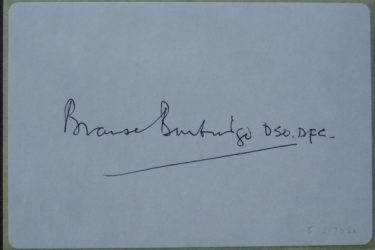 Branse Burbridge DSO. DFC.